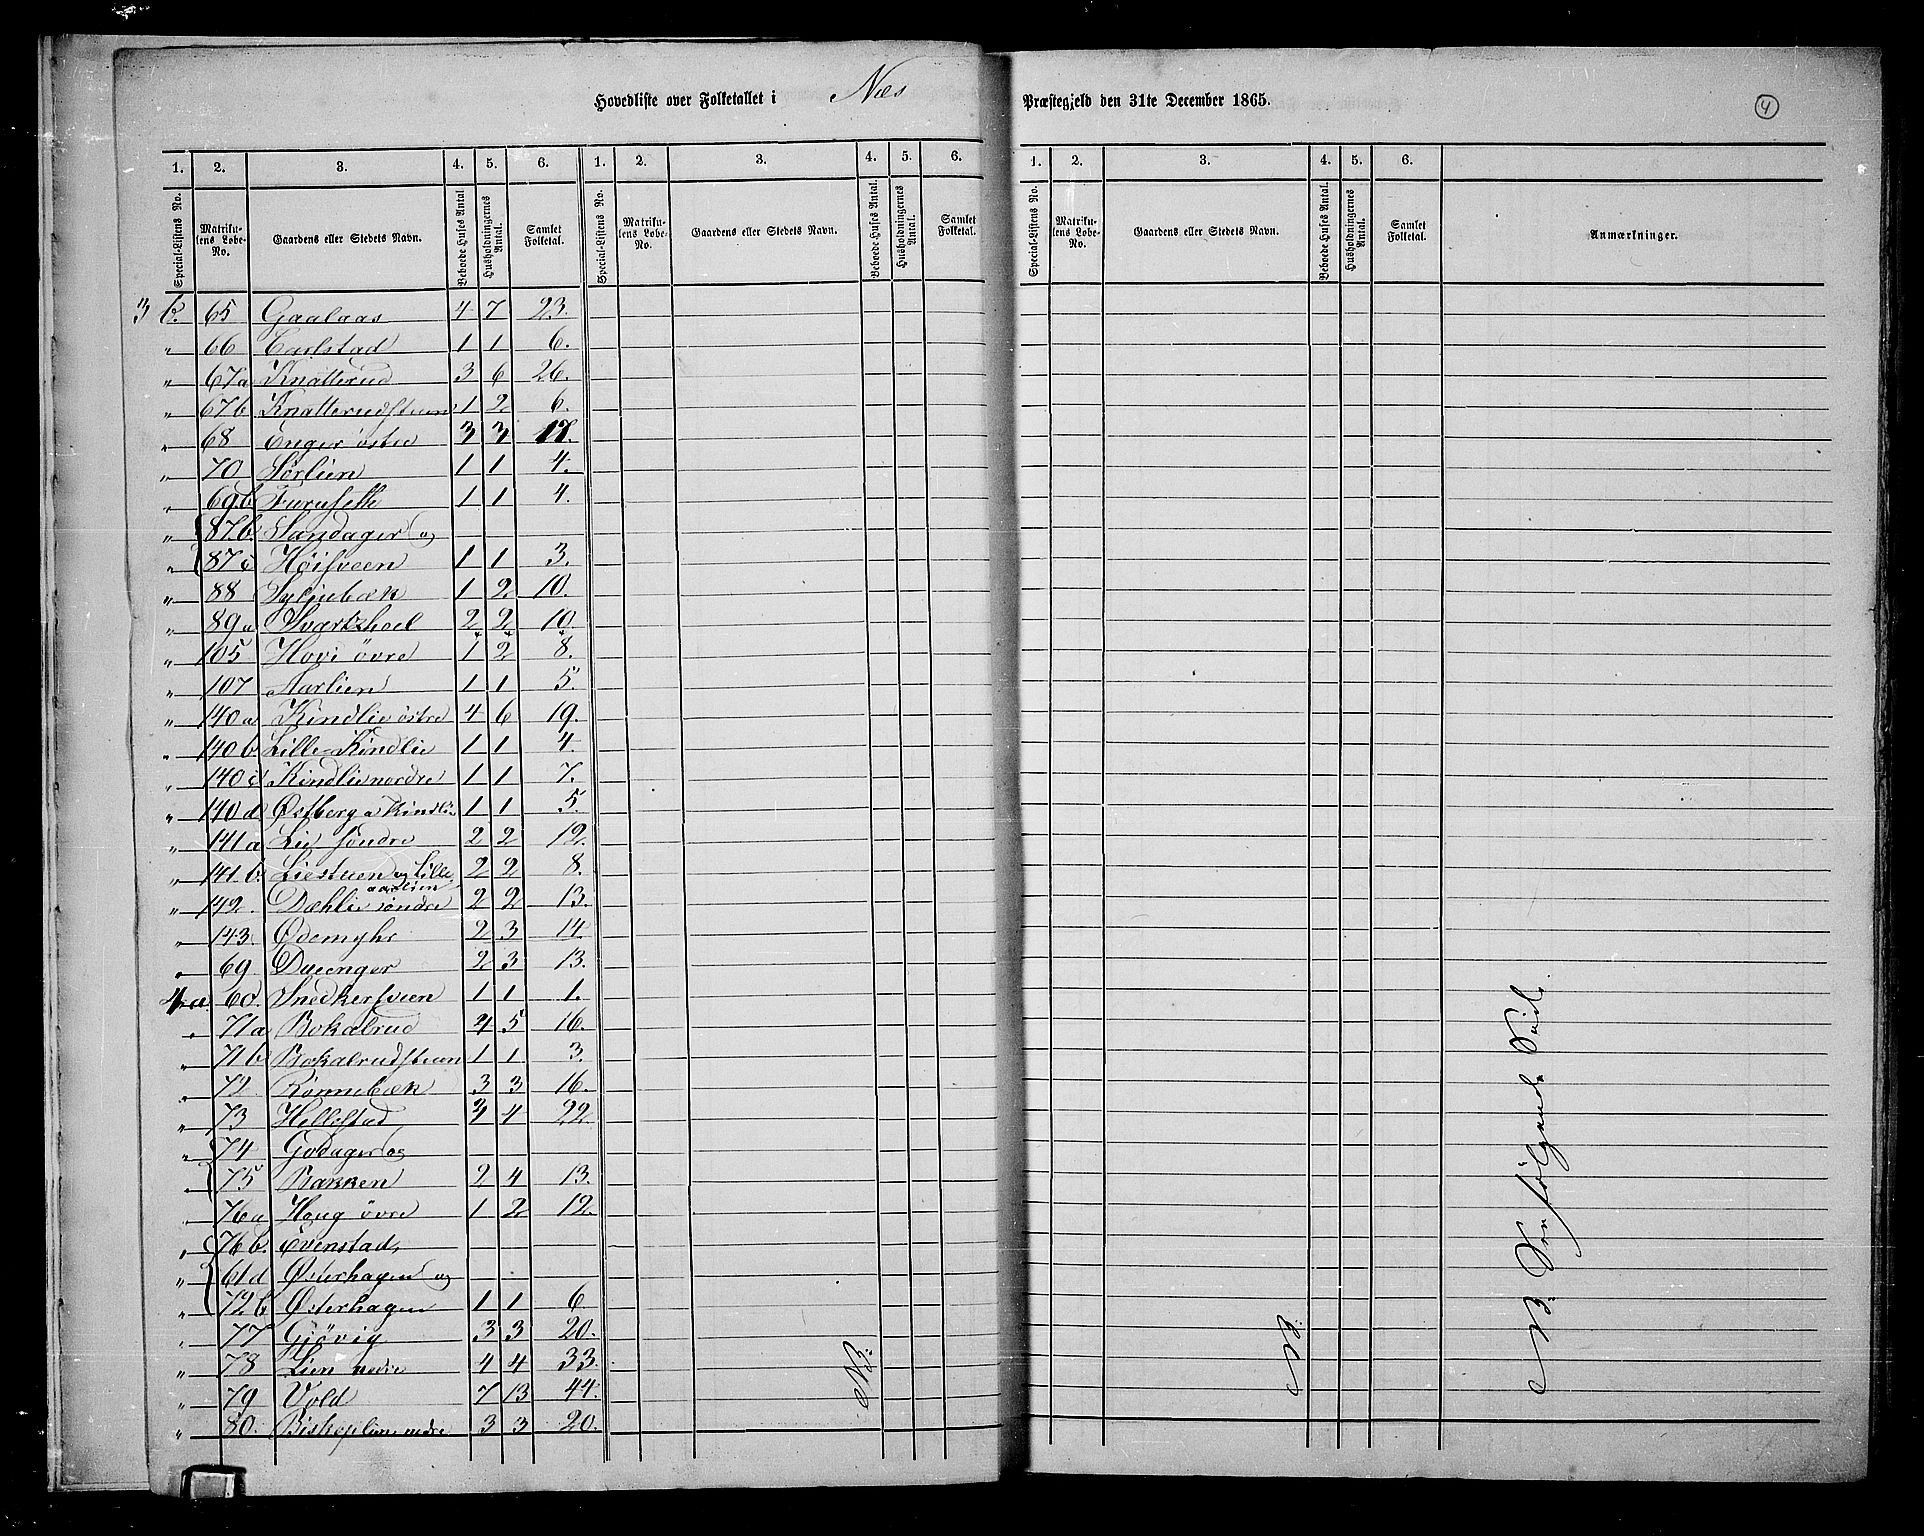 Hovedliste over Folketallet i Næs Præstegjeld den 31te December 1865. 4
1. 2. 3. 4. 5. 6. 1. 2. 3. 4. 5. 6. 1. 2. 3. 4. 5. 6.
Special-Listens No. Matrikulens Løbe-No. Gaardens eller Stedets Navn. Beboede Huses Antal. Husholdningernes Antal. Samlet Folketal. Special-Listens No. Matrikulens Løbe-No. Gaardens eller Stedets Navn. Beboede Huses Antal. Husholdningernes Antal. Samlet Folketal. Special-Listens No. Matrikulens Løbe-No. Gaardens eller Stedets Navn. Beboede Huses Antal. Husholdningernes Antal. Samlet Folketal. Anmærkninger.
3 b. 65 Gaalaas 4 7 23.
" 66 Carlstad 1 1 6.
" 67a Knatterud 3 6 26.
" 67b Knatterudstuen 1 2 6.
" 68 Enger østre 3 3 17.
" 70 Sørlien 1 1 4.
" 69b Furuseth 1 1 4.
" 87b Sandager og
" 87c Høisveen 1 1 3.
" 88 Syljubæk 1 2 10.
" 89a Svartshoel 2 2 10.
" 105 Hovi øvre 1 2 8.
" 107 Aarlien 1 1 5.
" 140a Kindlie østre 4 6 19.
" 140b Lille-Kindlie 1 1 4.
" 140c Kindlie nordre 1 1 7.
" 140d Østberg a Kindlie 1 1 5.
" 141a Lie søndre 2 2 12.
" 141b. Liestuen og Lille aarlien 2 2 8.
" 142. Dæhlie søndre 2 2 13.
" 143. Ødemyhr 2 3 14
" 69. Duenger 2 3 13.
4 a 60. Snedkersveen 1 1 1.
" 71a Bokalrud 4 5 16.
" 71b Bokalrudstuen 1 1 3.
" 72. Rønnebæk 3 3 16.
" 73 Hellestad 4 22.
" 74 Godager og
" 75 Bakken 2 4 13.
" 76a Houg øvre 1 2 12.
" 76b. Evenstad,
" 61d Østerhagen og
" 72b Østerhagen 1 1 6
" 77 Gjøvig 3 3 20.
" 78 Lien nedre 4 4 33.
" 79 Vold 7 13 44.
" 80. Biskoplien nedre 3 3 20.
NB:
NB:
NB: See følgende Side.